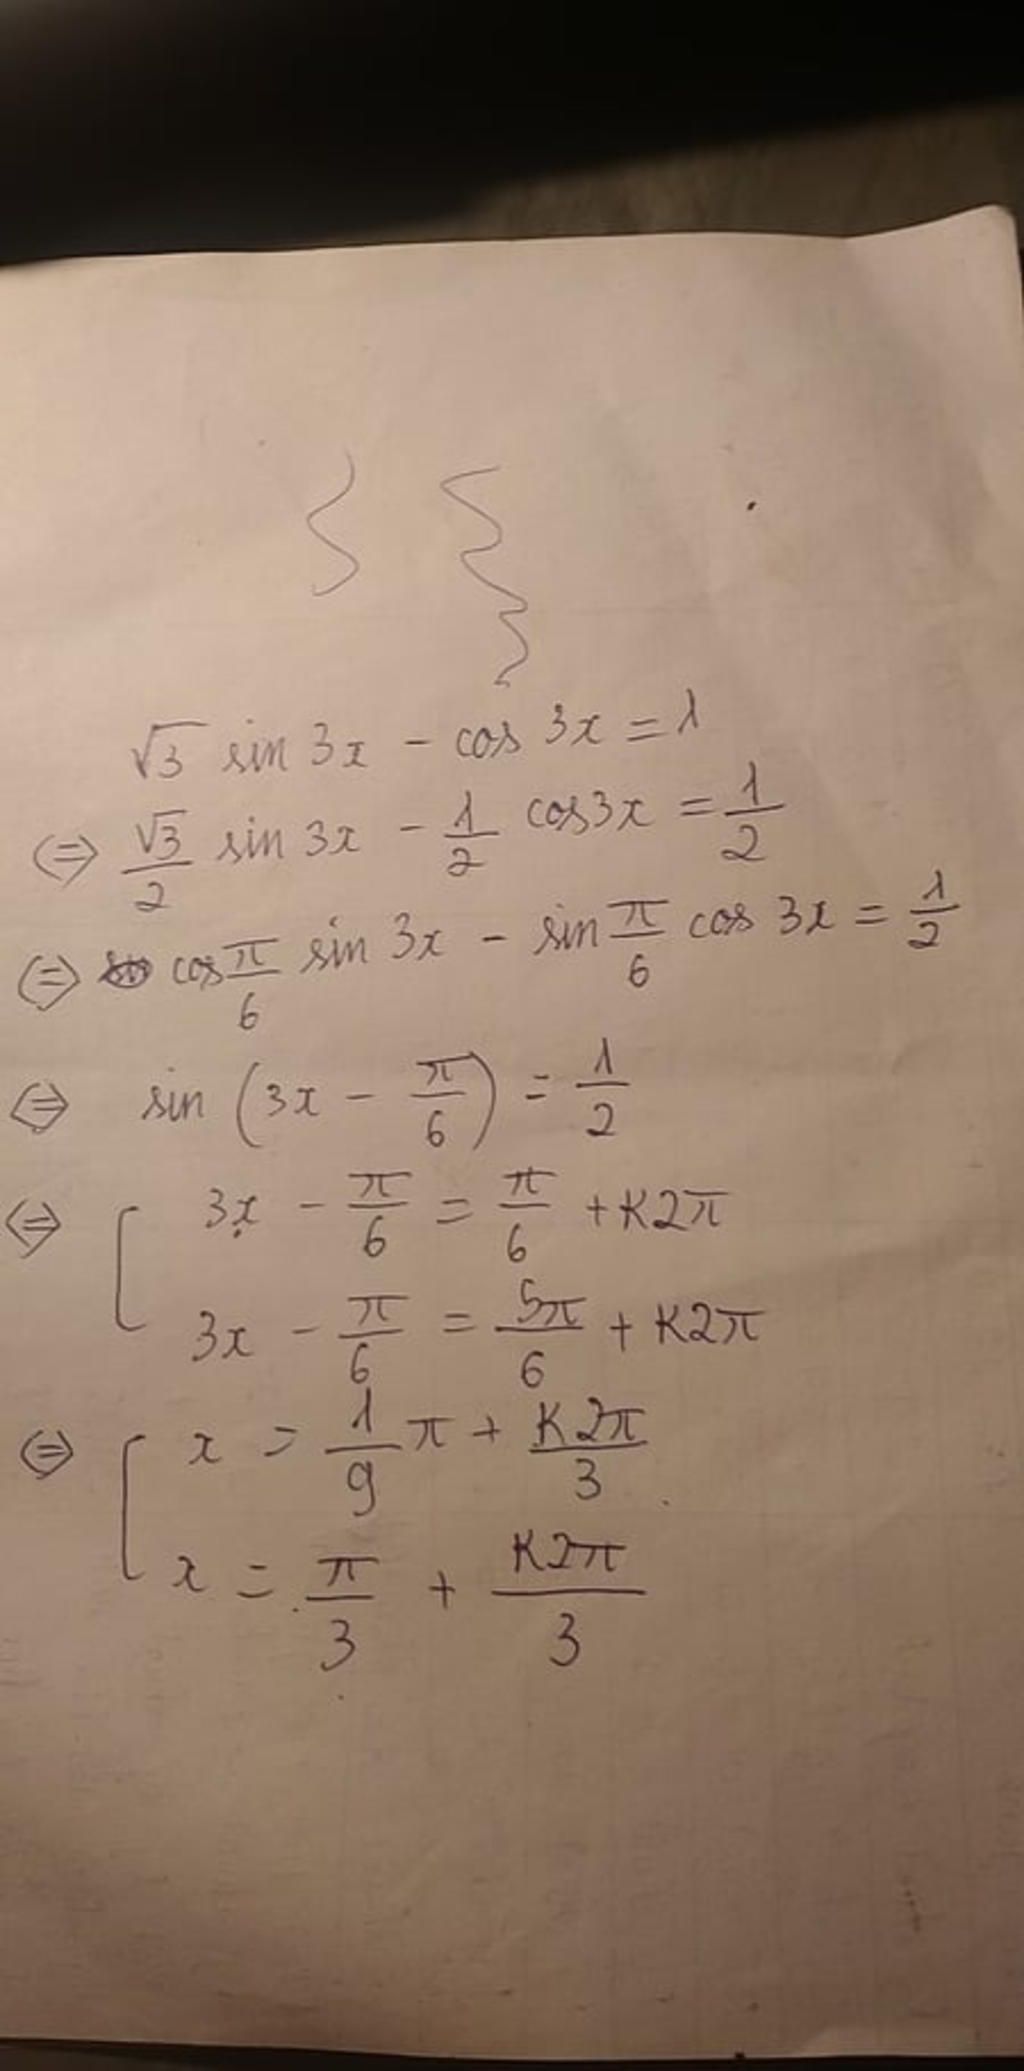 √3 sin 3x - cos 3x = 1
⇔ √3/2 sin 3x - 1/2 cos3x = 1/2
⇔ cos π/6 sin 3x - sin π/6 cos 3x = 1/2
⇔ sin (3x - π/6) = 1/2
⇔ [ 3x - π/6 = π/6 + K2π
3x - π/6 = 5π/6 + K2π
⇔ [ x = 1/9 π + K2π/3
x = π/3 + K2π/3